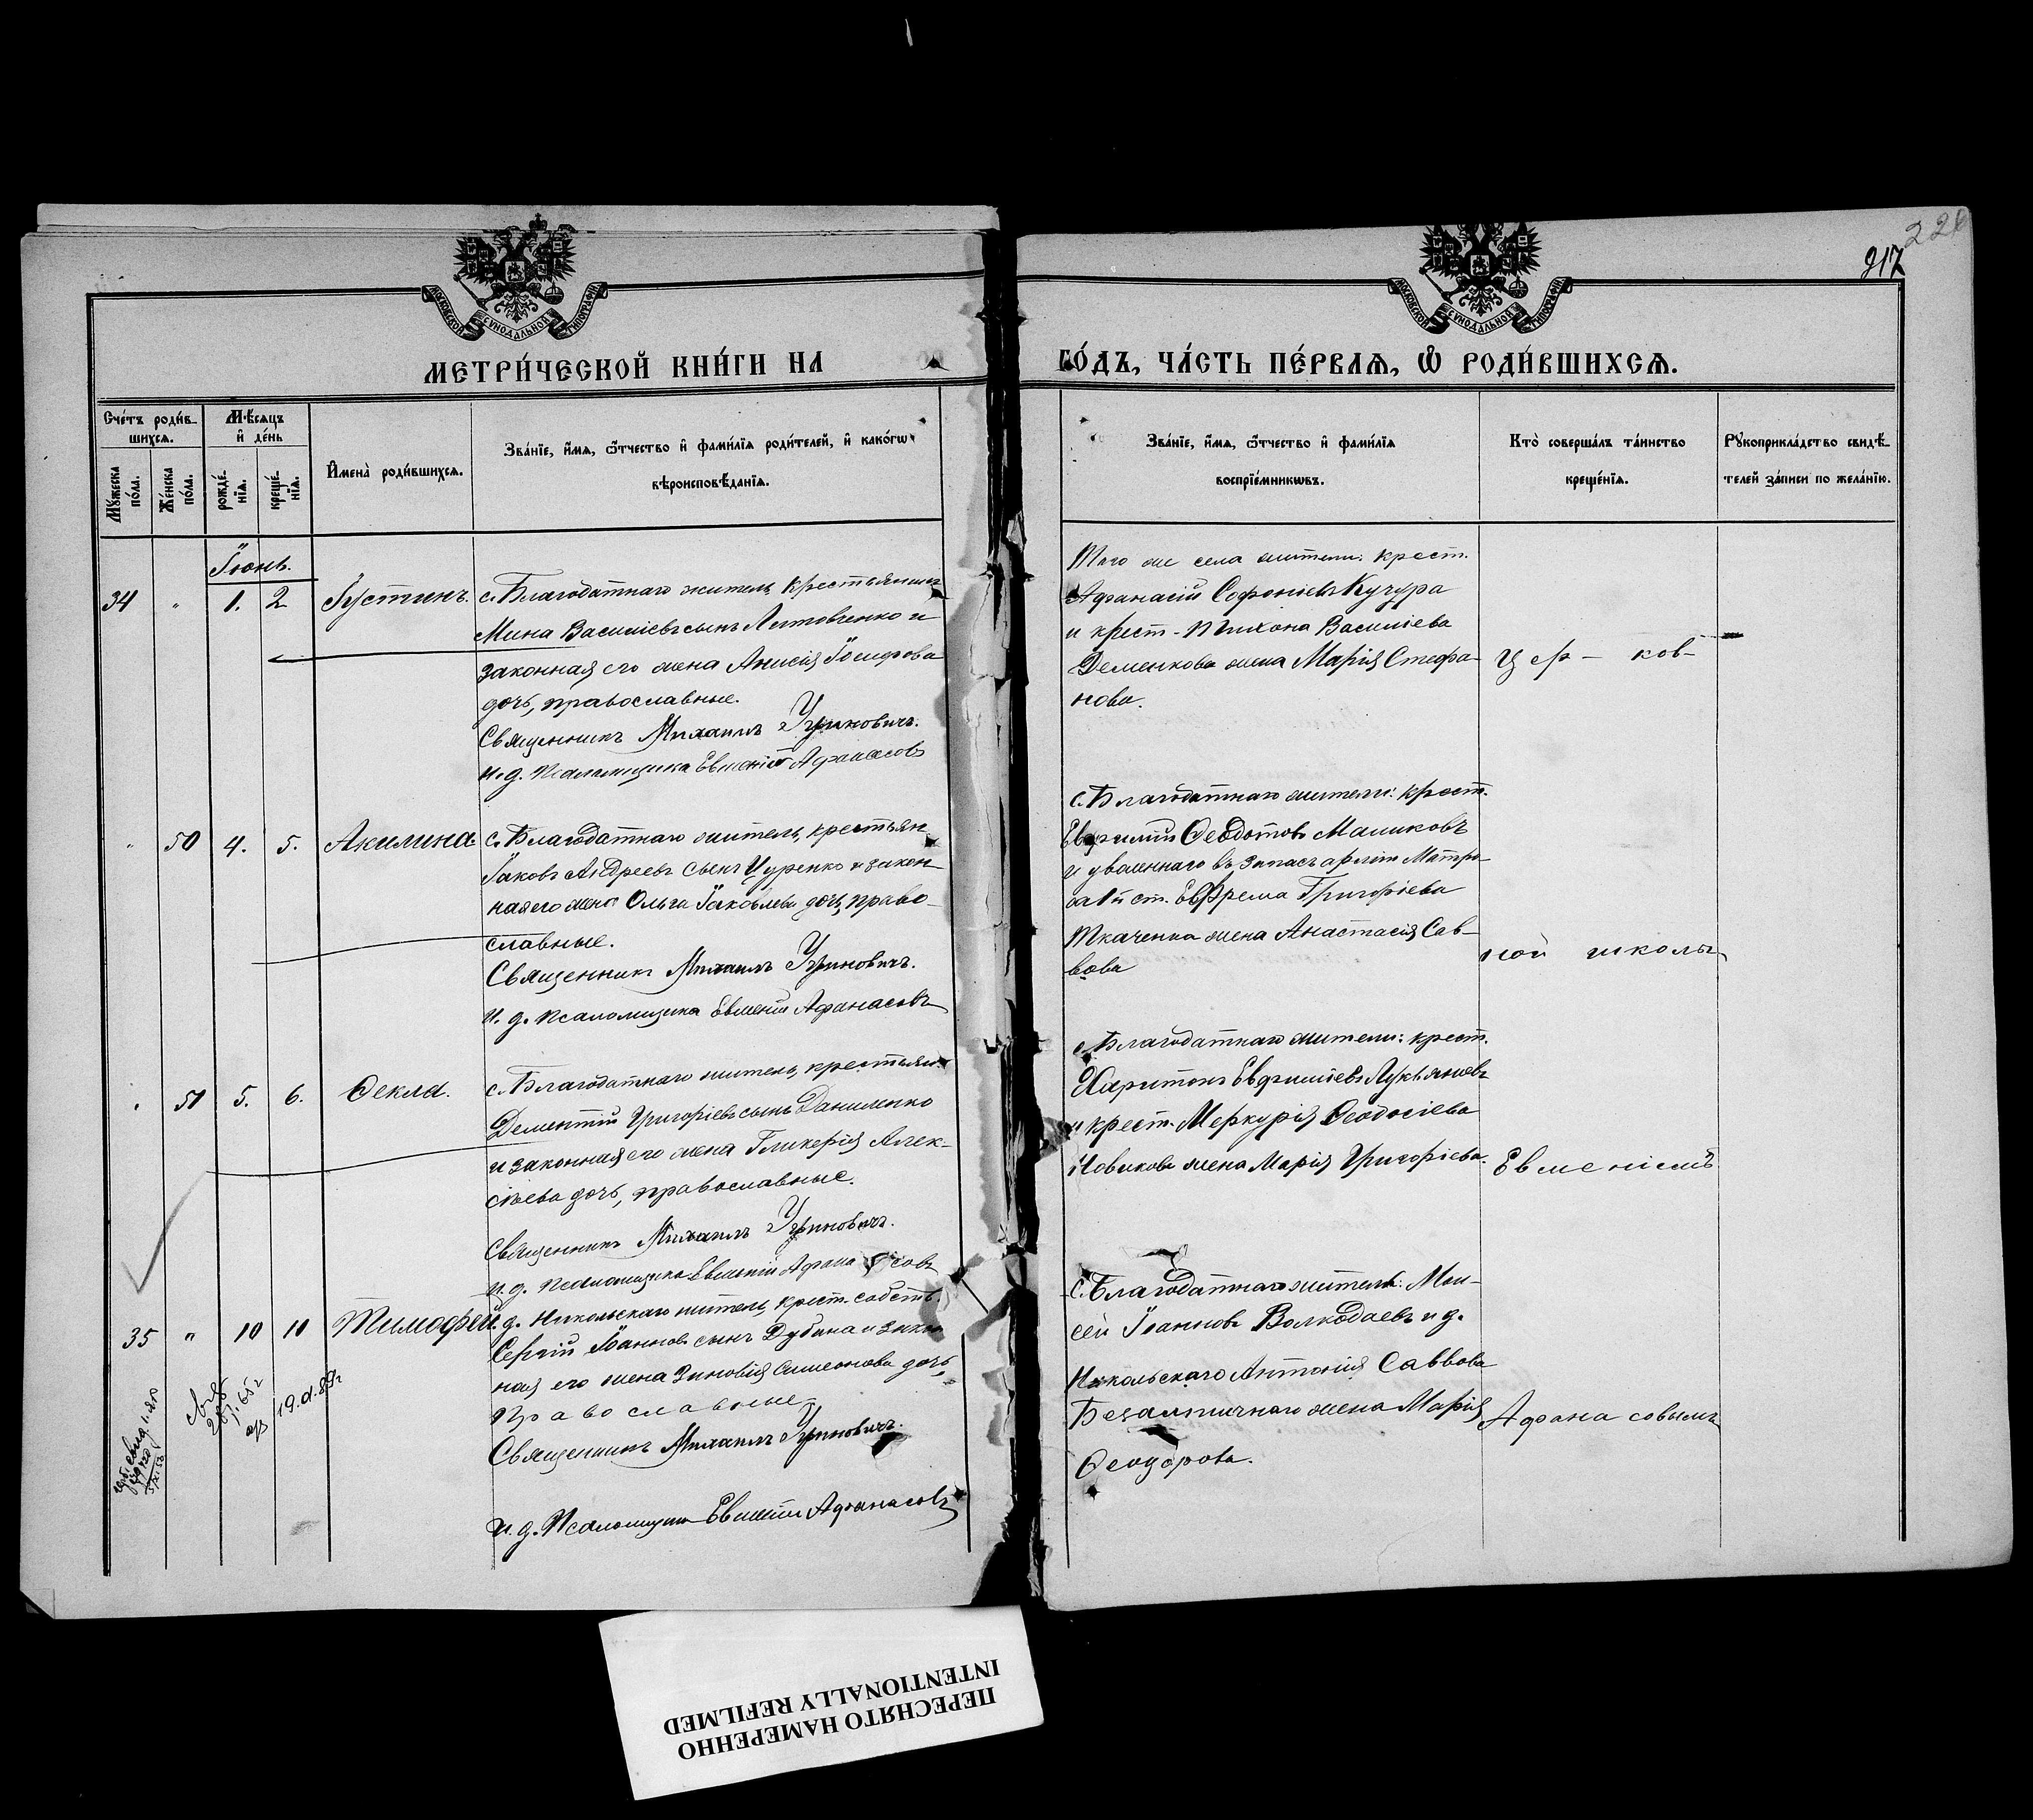 226
217
МОСКОВСКОЙ СѴНОДАЛЬНОЙ ТИПОГРАФІИ
МОСКОВСКОЙ СѴНОДАЛЬНОЙ ТИПОГРАФІИ
МЕТРИ́ЧЕСКОЙ КНИ́ГИ НА
ГО́ДЪ, ЧА́СТЬ ПЕ́РВАѦ, Ѽ РОДИ́ВШИХСѦ.
Сче́тъ роди́в-
шихсѧ.
Мꙋжеска по́ла.
Же́нска по́ла.
Мѣ́сѧцъ
и҆ де́нь
рожде́-
нїѧ.
креще́-
нїѧ.
И҆мена̀ роди́вшихсѧ.
Зва́нїе, и҆́мѧ, ѻ҆́тчество и҆ фами́лїѧ роди́телей, и҆ како́гѡ
вѣроисповѣ́данїѧ.
Зва́нїе, и҆́мѧ, ѻ҆́тчество и҆ фами́лїѧ
воспрїе́мникѡвъ.
Кто̀ соверша́лъ та́инство
креще́нїѧ.
Рꙋкоприкла́дство свидѣ́-
телей за́писи по жела́нїю.
Іюнь.
34 " 1. 2 Іустинъ.
с. Благодатнаго житель, крестьянинъ
Мина Василіевъ сынъ Литовченко и
законная его жена Анисія Іосифова
дочь, православные.
Священникъ Михаилъ Угриновичъ.
и. д. Псаломщика Евменій Афанасовъ
Того же села жители: крест.
Афанасій Софоніевъ Кучура
и крест. Тихона Василіева
Деменкова жена Марія Стефа-
нова.
цер- ков-
" 50 4. 5. Акилина.
с. Благодатнаго житель, крестьян.
Іаковъ Андреевъ сынъ Цуренко и закон-
ная его жена Ольга Іаковлева дочь, право-
славные.
Священникъ Михаилъ Угриновичъ.
И. д. псаломщика Евменій Афанасовъ
с. Благодатнаго жители: крест.
Евфимій Ѳеодотовъ Машковъ
и уволеннаго въ запасъ арміи Матро-
са 1й ст. Ефрема Григоріева
Ткаченка жена Анастасія Сав-
вова
ной школы
" 51 5. 6. Ѳекла.
с. Благодатнаго житель, крестьян.
Дементій Григоріевъ сынъ Даниленко
и законная его жена Гликерія Алек-
сіева дочь, православные.
Священникъ Михаилъ Угриновичъ.
и. д. Псаломщика Евменій Афанасовъ
с. Благодатнаго жители: крест.
Харитонъ Евфиміевъ Лукьяновъ
и крест. Меркурія Ѳеодосіева
Новикова жена Марія Григоріева.
Евменіемъ
35 " 10 10 Тимофей.
д. Никольскаго житель, крест. собств.
Сергій Іоанновъ сынъ Дубина и закон-
ная его жена Зиновія Симеонова дочь,
Православные
Священникъ Михаилъ Угриновичъ.
и. д. Псаломщика Евменій Афанасовъ
с. Благодатнаго житель: Мои-
сей Іоанновъ Волкодаевъ и д.
Никольскаго Антонія Саввова
Безалтичнаго жена Марія
Ѳеодорова.
Афанасовымъ
ПЕРЕСНЯТО НАМЕРЕННО
INTENTIONALLY REFILMED